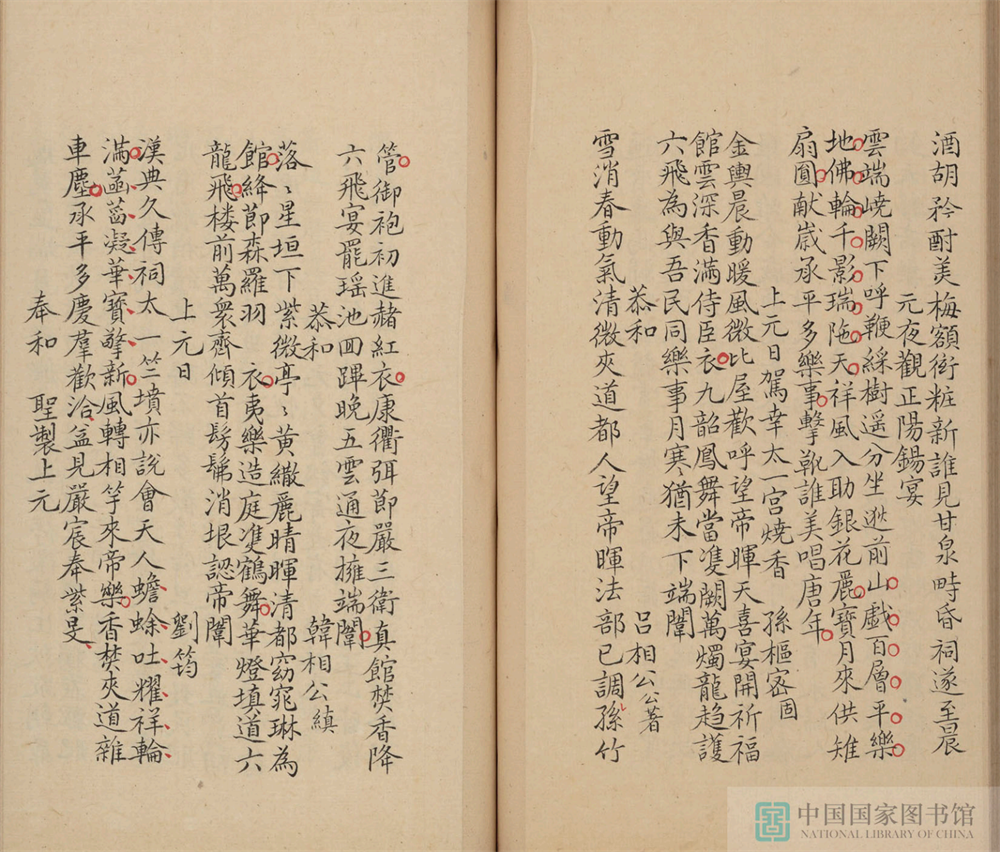 酒胡矜酎美梅額衒粧新誰見甘泉畤昏祠遂至晨
元夜觀正陽錫宴
雲端嶢闕下呼鞭綵樹遥分坐迯前山戲百層平樂
地佛輪千影瑞陁天祥風入助銀花麗寶月來供雉
扇圓献嵗承平多樂事擊鞀誰美唱唐年
上元日駕幸太一宮焼香 孫樞宻固
金輿晨動暖風微比屋歡呼望帝暉天喜宴開祈福
館雲深香滿侍臣衣九韶鳳舞當䨇闕萬燭龍趋護
六飛為與吾民同樂事月寒猶未下端闈
恭和 吕相公公著
雪消春動氣清微夾道都人望帝暉法部已調孫竹
管御袍初進赭紅衣康衢弭節嚴三衛真館焚香降
六飛宴罷瑶池回蹕晚五雲通夜擁端闈
恭和 韓相公縝
落〻星垣下紫微亭〻黄繖麗晴暉清都窈窕琳為
館絳節森羅羽 衣夷樂造庭䨇鶴舞華燈填道六
龍飛楼前萬衆齊傾首髣髴消垠認帝闈
上元日 劉筠
漢典久傳祠太一竺墳亦說會天人蟾蜍吐耀祥輪
滿菡萏凝華寶擎新風轉相竿來帝樂香焚夾道雜
車塵承平多慶羣歡洽盆見嚴宸奉紫旻
奉和 聖製上元
中国国家图书馆
NATIONAL LIBRARY OF CHINA